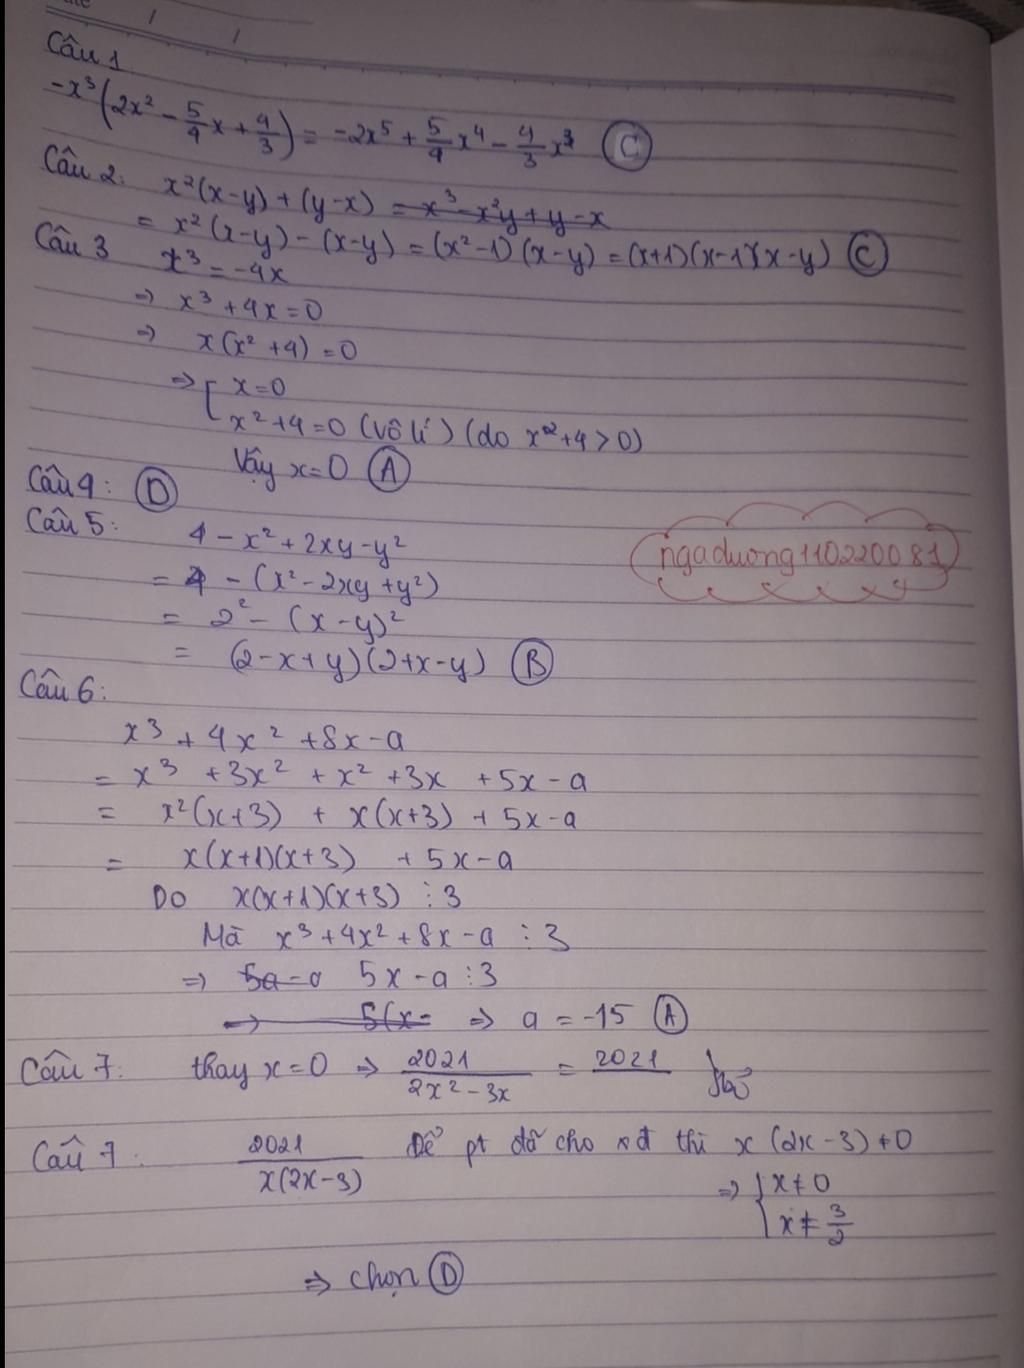 Câu 1
-x³(2x² - 5/4x + 4/3) = -2x⁵ + 5/4x⁴ - 4/3x³ (C)
Câu 2: x²(x-y)+(y-x) = x³-x²y+y-x
= x²(x-y)-(x-y) = (x²-1)(x-y) = (x+1)(x-1)(x-y) (C)
Câu 3 x³ = -4x
⇒ x³ + 4x = 0
⇒ x(x² + 4) = 0
⇒ [ x = 0
x² + 4 = 0 (Vô lí) (do x² + 4 > 0)
Vậy x = 0 (A)
Câu 4: (D)
Câu 5: 4 - x² + 2xy - y²
= 4 - (x² - 2xy + y²)
= 2² - (x - y)²
= (2 - x + y)(2 + x - y) (B)
ngaduong11022008 1
Câu 6:
x³ + 4x² + 8x - a
= x³ + 3x² + x² + 3x + 5x - a
= x²(x+3) + x(x+3) + 5x - a
= x(x+1)(x+3) + 5x - a
Do x(x+1)(x+3) ⋮ 3
Mà x³ + 4x² + 8x - a ⋮ 3
⇒ 5a - a 5x - a ⋮ 3
→ 5(x- ⇒ a = -15 (A)
Câu 7: thay x = 0 ⇒ 2021/2x² - 3x = 2021
Câu 7: 2021/x(2x-3) Để pt đã cho xđ thì x(2x-3) ≠ 0
⇒ { x ≠ 0
x ≠ 3/2
⇒ chọn (D)